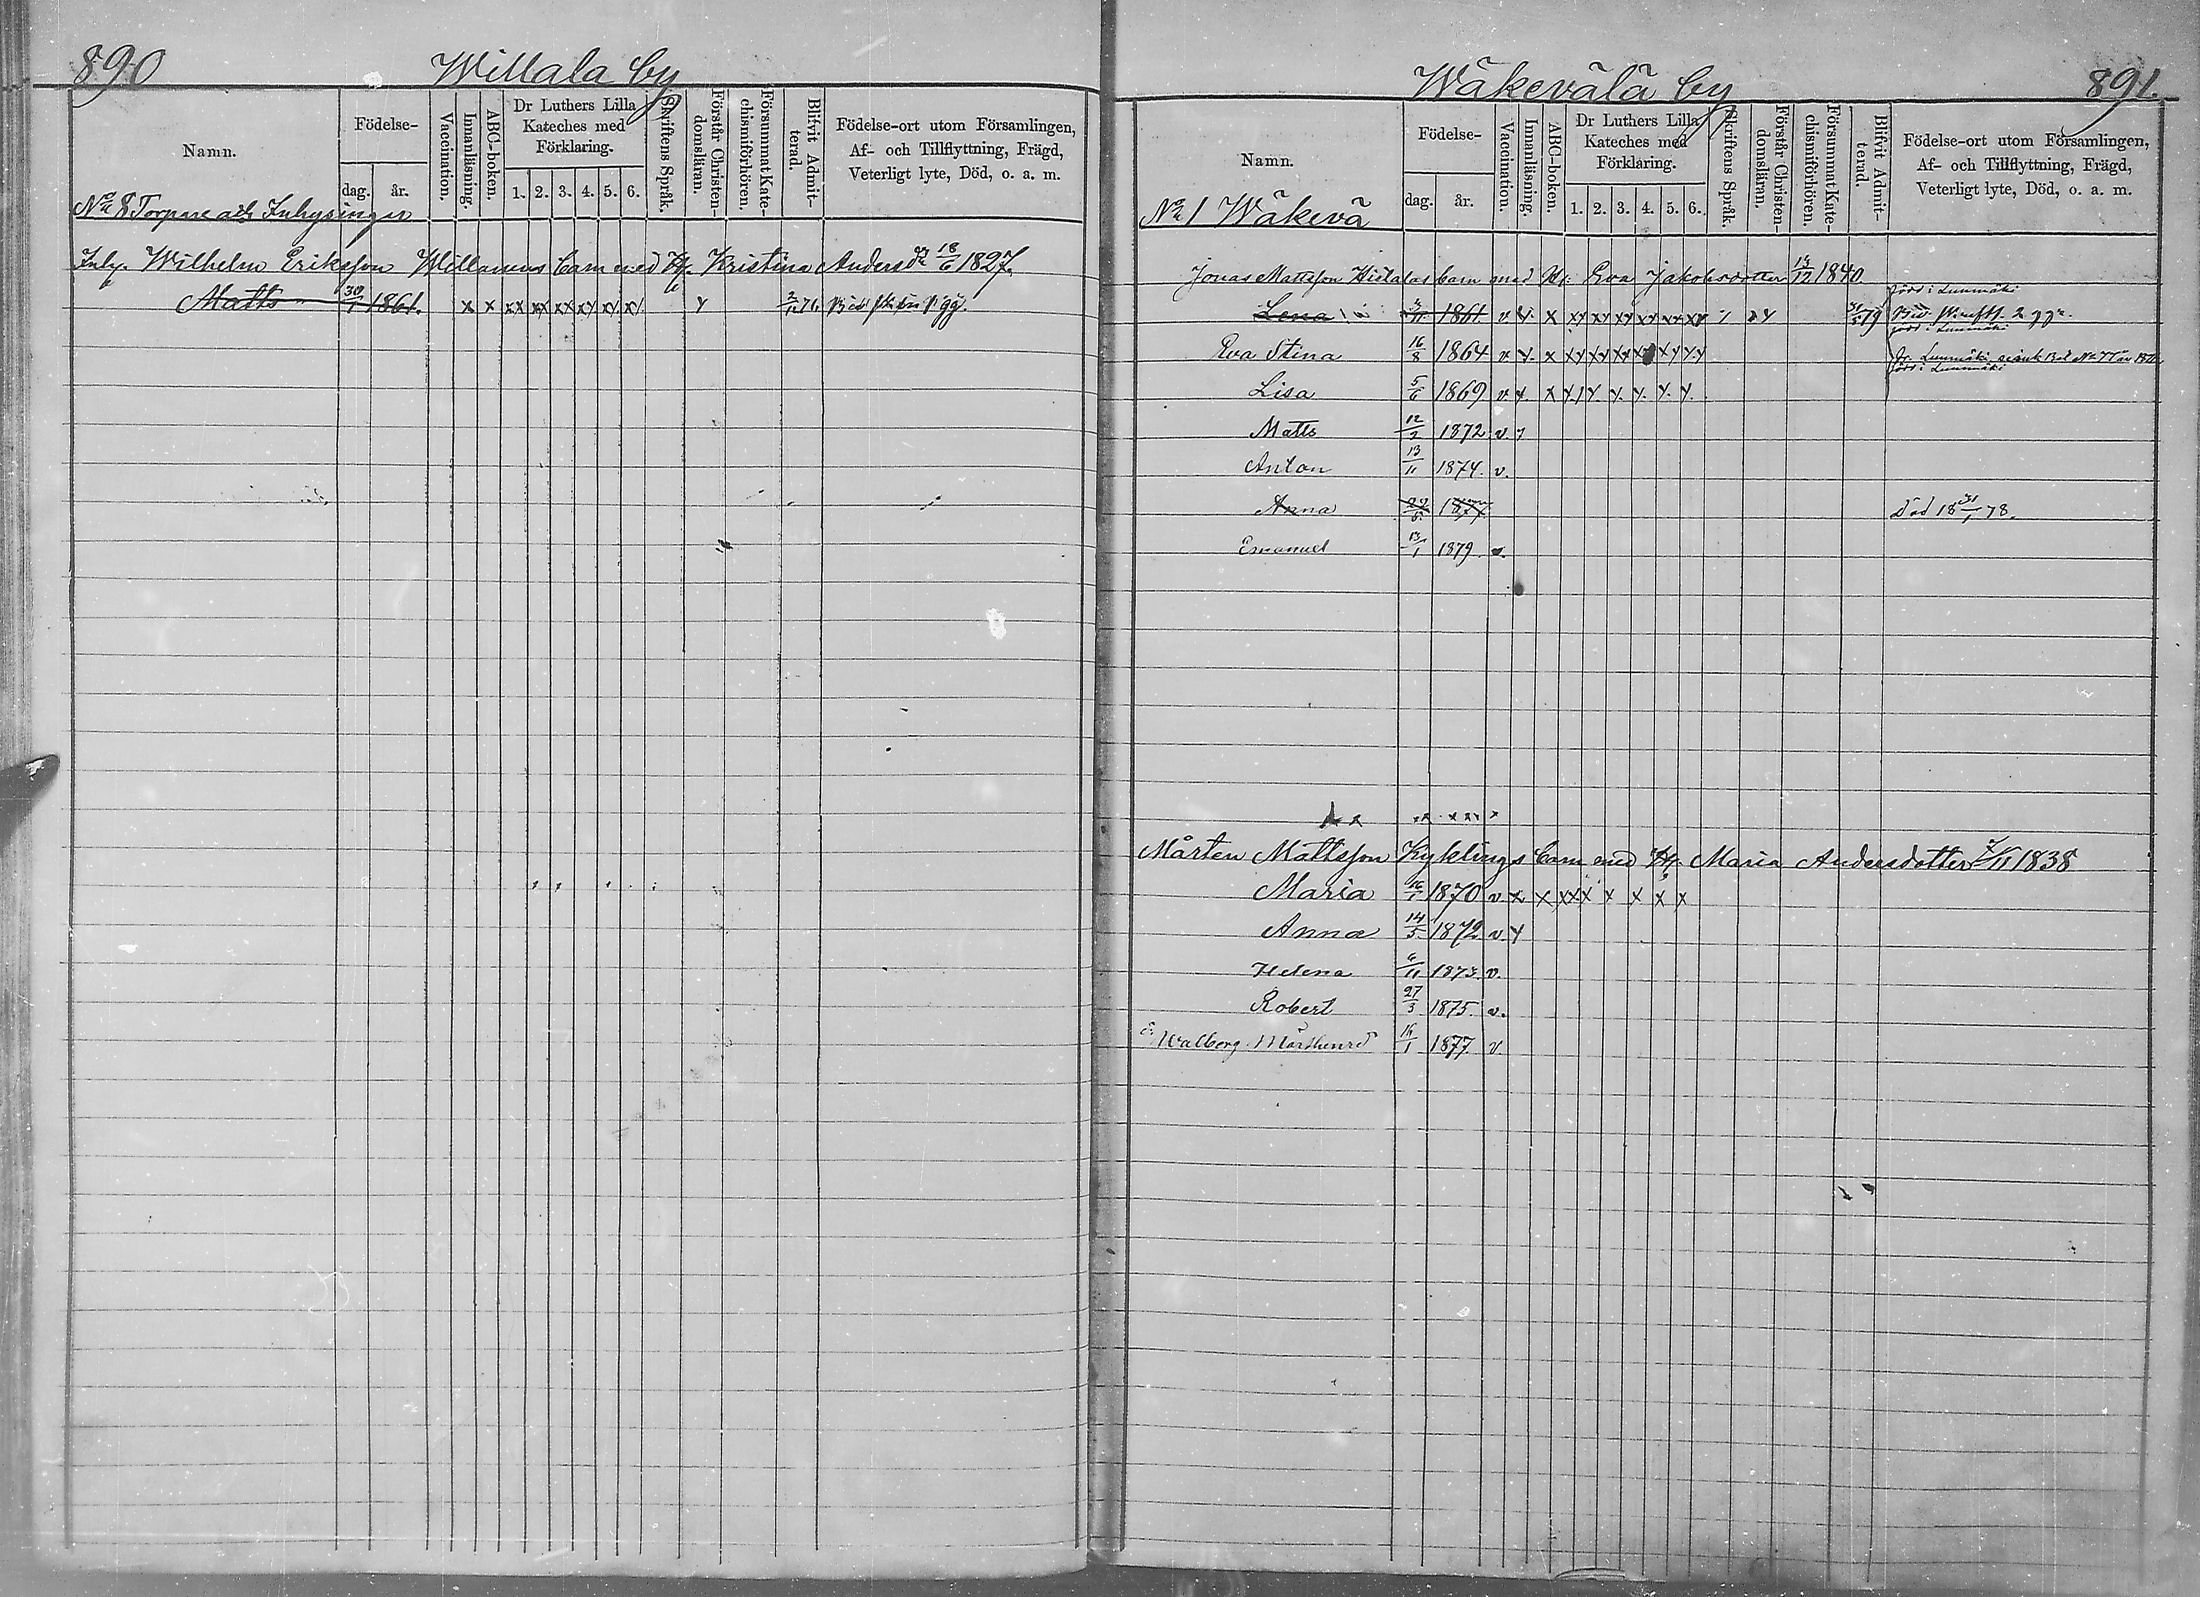 890
Willala by
Namn.
Födelse-
dag.
år.
Vaccination.
Innanläsning.
ABC-boken.
Dr Luthers Lilla
Kateches med
Förklaring.
1. 2. 3. 4. 5. 6.
Skriftens Språk.
Förstår Christen-
domsläran.
Försummat Kate-
chismiförhören.
Blifvit Admit-
terad.
Födelse-ort utom Församlingen,
Af- och Tillflyttning, Frägd,
Veterligt lyte, Död, o. a. m.
No 8 Torpare och Inhysingar
Inhys. Wilhelm Eriksson Willamens barn med H. Kristina Andersdr 18/6 1827.
Matts 30/1 1861. x x xx xx xx xx xx xx y 2/1 76
Wäkevälä by
891.
Namn.
Födelse-
dag.
år.
Vaccination.
Innanläsning.
ABC-boken.
Dr Luthers Lilla
Kateches med
Förklaring.
1. 2. 3. 4. 5. 6.
Skriftens Språk.
Förstår Christen-
domsläran.
Försummat Kate-
chismiförhören.
Blifvit Admit-
terad.
Födelse-ort utom Församlingen,
Af- och Tillflyttning, Frägd,
Veterligt lyte, Död, o. a. m.
No 1 Wäkevä
Jonas Mattsson barn med H. Eva Jakobsdotter 13/12 1840
född i Lunmäki
Lena 1861 v
född i Lunmäki
Eva Stina 16/8 1864 v
född i Lunmäki
Lisa 5/6 1869 v
Matts 12/2 1872 v
Anton 13/11 1874 v.
Anna 1877 Död 18 31/1 78.
Emanuel 13/1 1879 v.
Mårten Mattsson Kyklings barn med H. Maria Andersdotter 1838
Maria 16/1 1870 v x x xx x x x x x
Anna 14/5 1872 v y
Helena 6/11 1873 v.
Robert 27/3 1875 v.
Walborg 16/1 1877 v